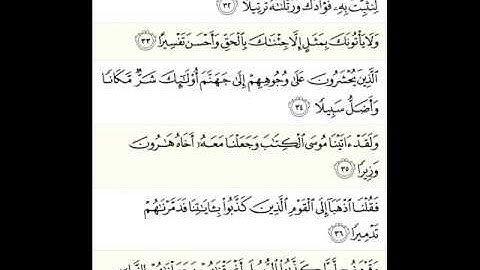 لِنُثَبِّتَ بِهِۦ فُؤَادَكَ وَرَتَّلْنَٰهُ تَرْتِيلًا ٣٢
وَلَا يَأْتُونَكَ بِمَثَلٍ إِلَّا جِئْنَٰكَ بِٱلْحَقِّ وَأَحْسَنَ تَفْسِيرًا ٣٣
ٱلَّذِينَ يُحْشَرُونَ عَلَىٰ وُجُوهِهِمْ إِلَىٰ جَهَنَّمَ أُو۟لَٰٓئِكَ شَرٌّ مَّكَانًا
وَأَضَلُّ سَبِيلًا ٣٤
وَلَقَدْ ءَاتَيْنَا مُوسَى ٱلْكِتَٰبَ وَجَعَلْنَا مَعَهُۥٓ أَخَاهُ هَٰرُونَ
وَزِيرًا ٣٥
فَقُلْنَا ٱذْهَبَآ إِلَى ٱلْقَوْمِ ٱلَّذِينَ كَذَّبُوا۟ بِـَٔايَٰتِنَا فَدَمَّرْنَٰهُمْ
تَدْمِيرًا ٣٦
وَقَوْمَ نُوحٍ لَّمَّا كَذَّبُوا۟ ٱلرُّسُلَ أَغْرَقْنَٰهُمْ وَجَعَلْنَٰهُمْ لِلنَّاسِ